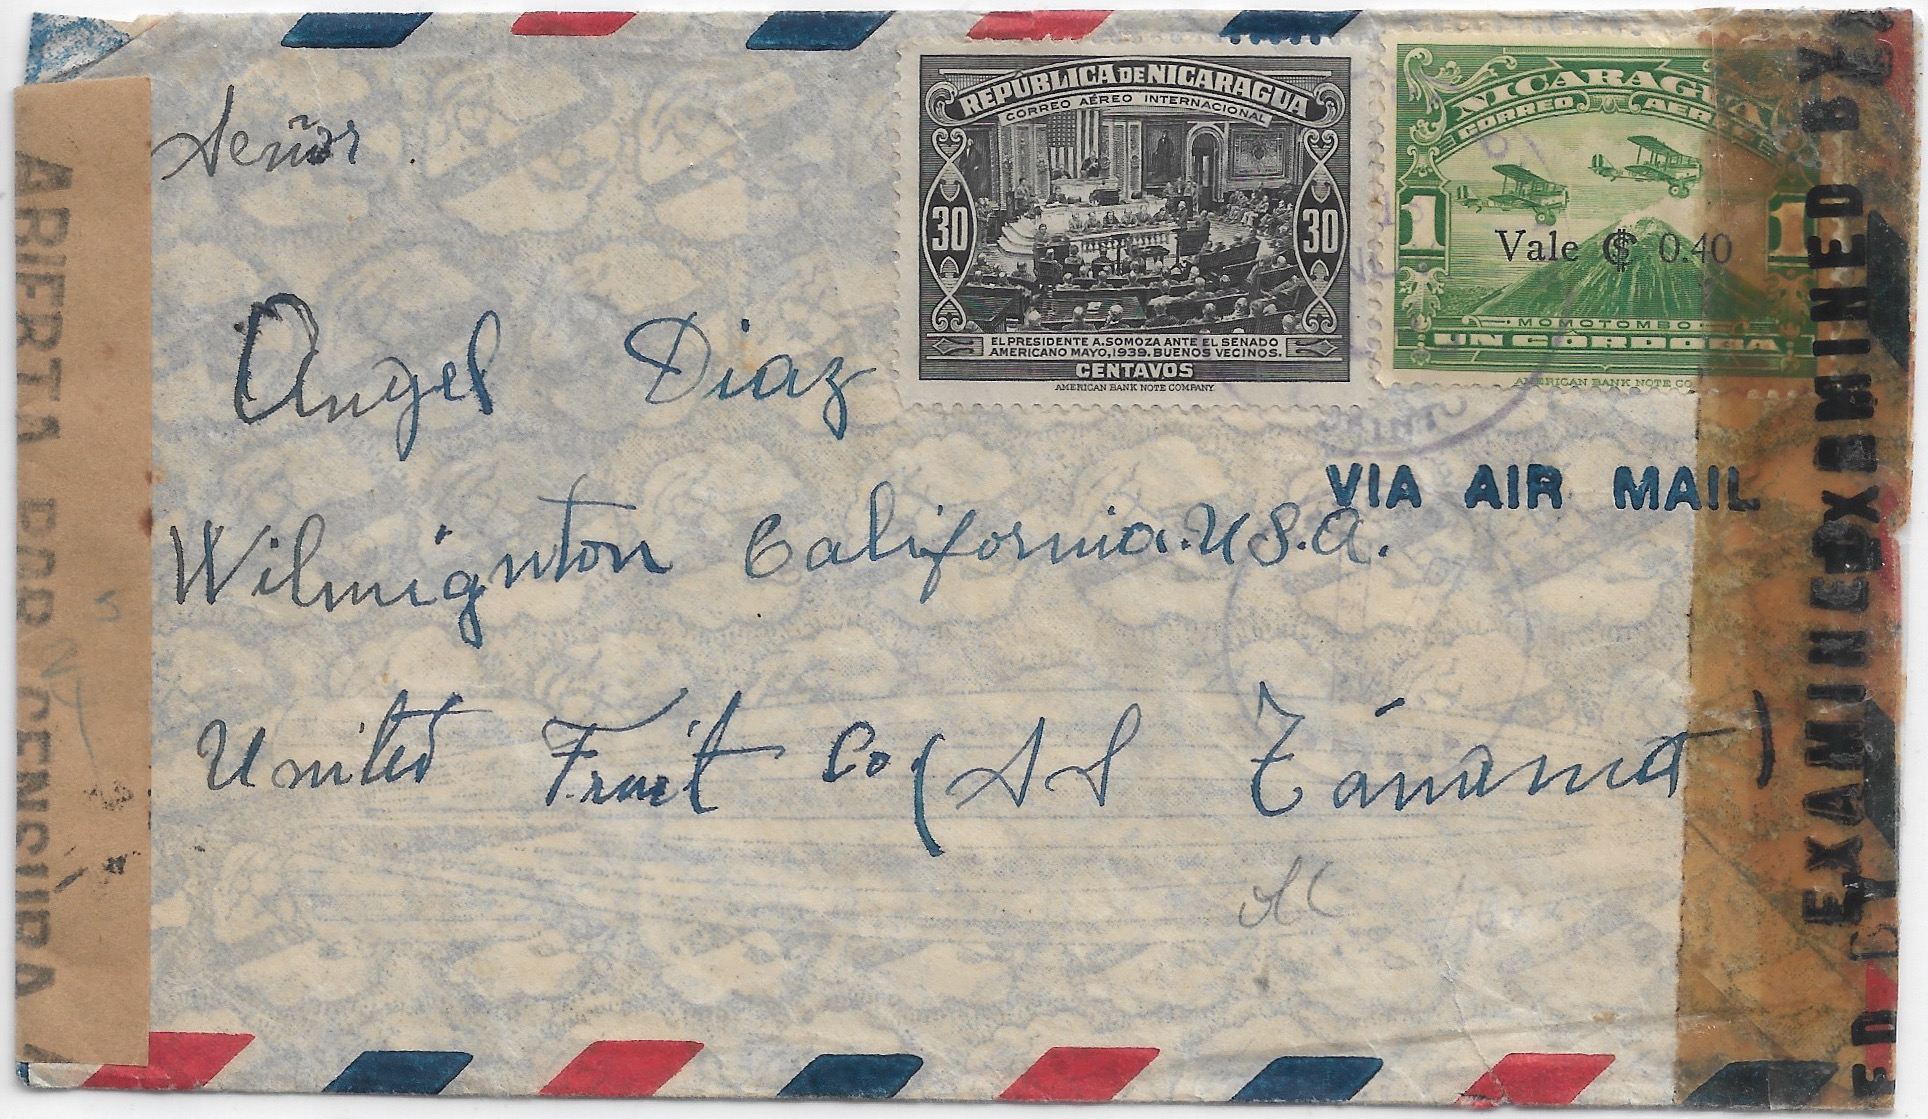 Señor
REPÚBLICA DE NICARAGUA
CORREO AÉREO INTERNACIONAL
30 30
EL PRESIDENTE A. SOMOZA ANTE EL SENADO
AMERICANO MAYO, 1939. BUENOS VECINOS.
CENTAVOS
AMERICAN BANK NOTE COMPANY.
NICARAGUA
CORREO AEREO
1 1
Vale ₡ 0.40
MOMOTOMBO
UN CÓRDOBA
AMERICAN BANK NOTE CO
Angel Diaz
VIA AIR MAIL
Wilmignton California. U.S.A.
United Fruit Co. (SS Tánama)
ABIERTA POR CENSURA
EXAMINED BY
EXAMINED BY